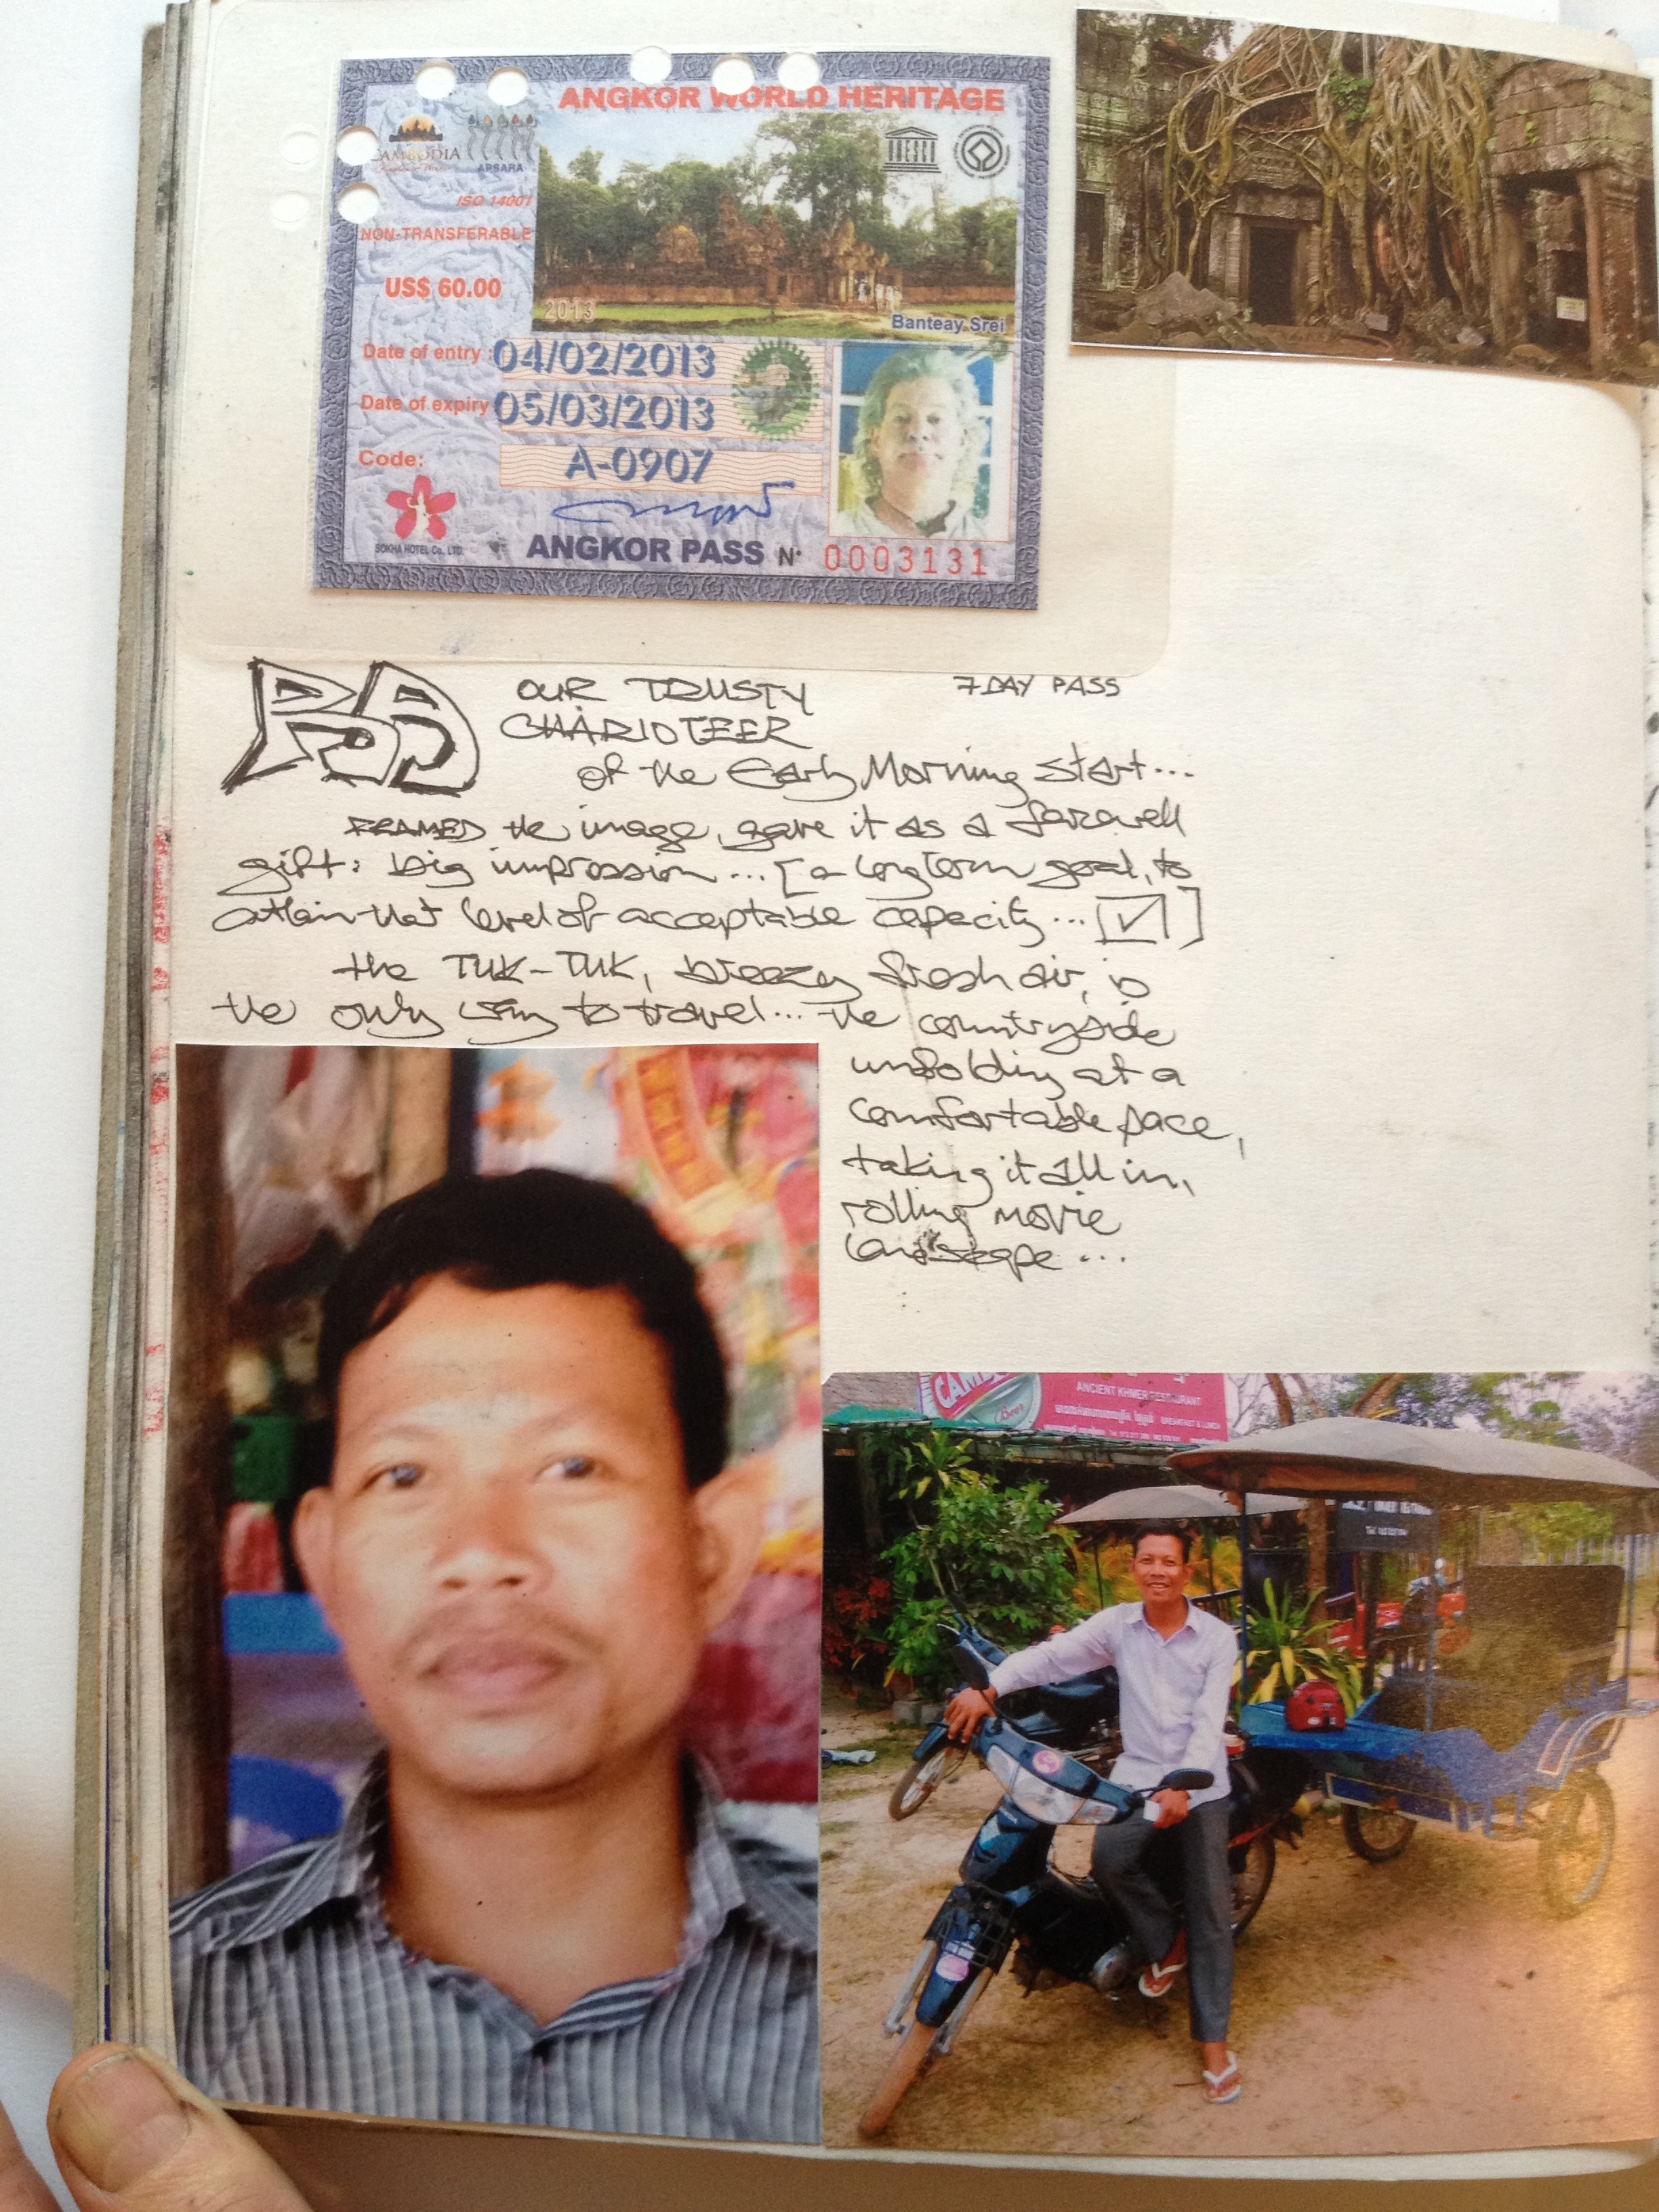 ANGKOR WORLD HERITAGE
CAMBODIA
APSARA
UNESCO
ISO 14001
NON-TRANSFERABLE
US$ 60.00
2013
Banteay Srei
Date of entry : 04/02/2013
Date of expiry 05/03/2013
Code: A-0907
SOKHA HOTEL Co., LTD.
ANGKOR PASS N° 0003131
7 DAY PASS
OUR TRUSTY
CHARIOTEER
of the Early Morning start...
FRAMED the image, gave it as a farewell
gift: big impression... [a long term goal, to
attain that level of acceptable capacity... [✓]
the TUK-TUK, breezy fresh air, is
the only way to travel... the countryside
unfolding at a
comfortable pace,
taking it all in,
rolling movie
landscape...
ANCIENT KHMER RESTAURANT
BREAKFAST & LUNCH
Beer